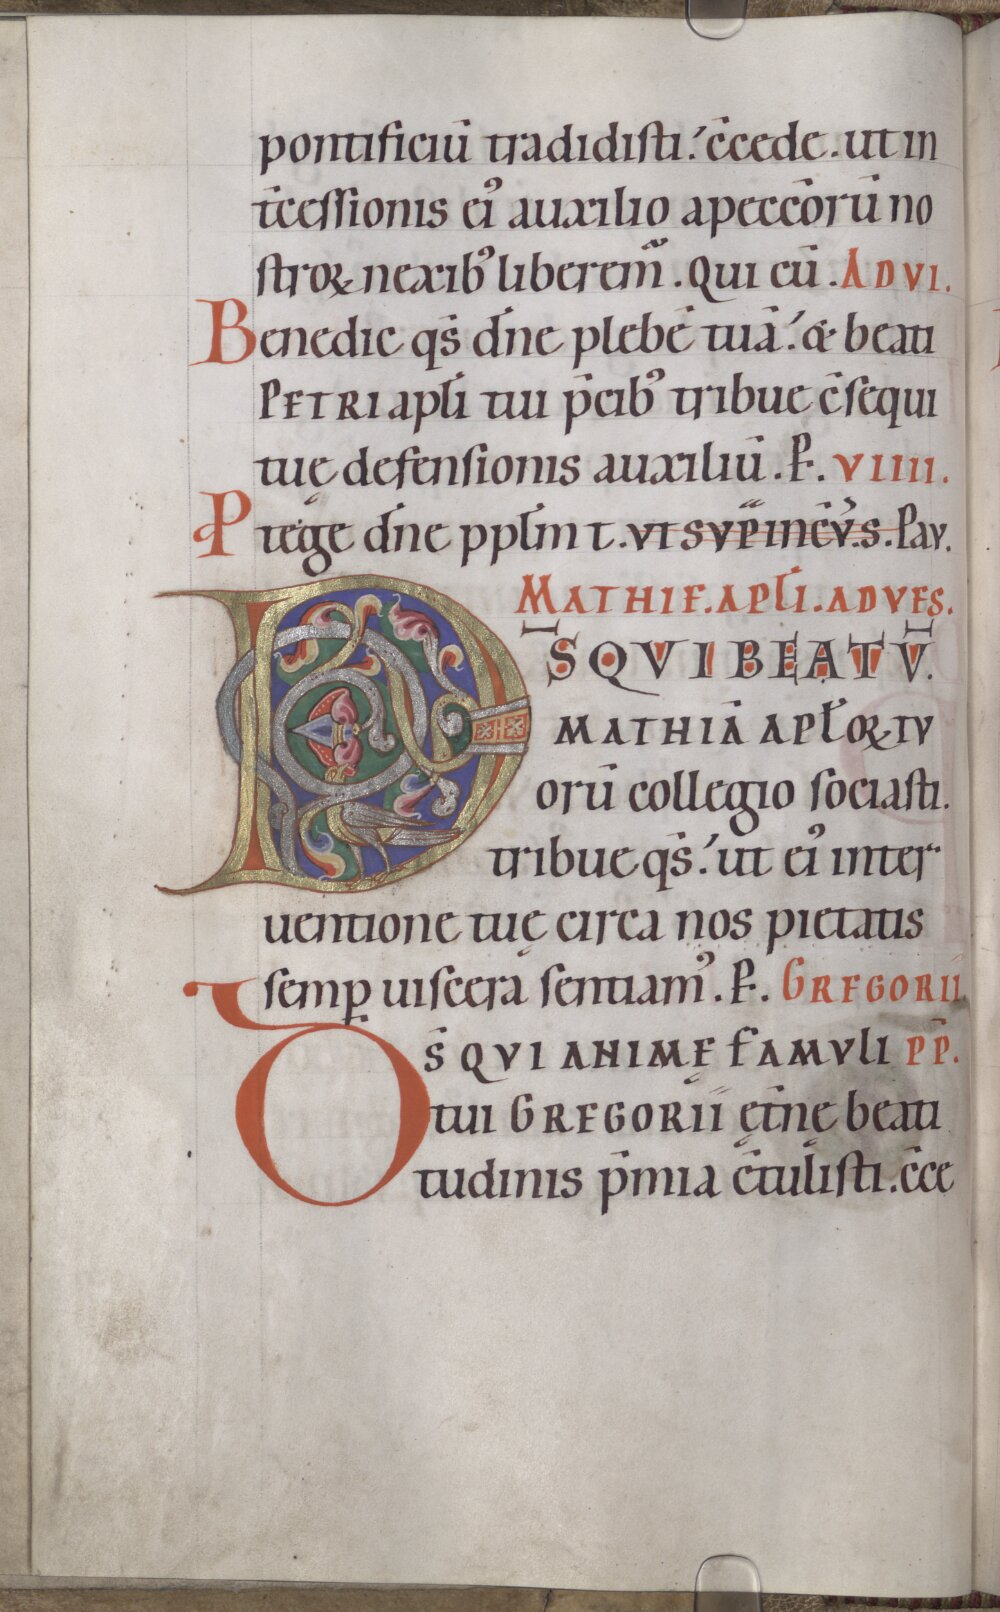 pontificiū tradidisti. c̄cede. ut in
t̄cessionis ei᾽ auxilio a peccc̄orū no
stroꝝ nexib᾽ liberem᷑. Qui cū. ADVI.
Benedic qs̄ dn̄e plebē tuā. & beati
PETRI apl̄i tui p̄cib᾽ tribue c̄sequi
tuę defensionis auxiliū. P̶. VIIII.
Ptege dn̄e pplm̄ t. VT SVP̄ IN CV̄S. PAV.
MATHIE. APL̄I. AD VES.
D̄S QVI BEATV̄
MATHIĀ APL̄OꝜ TV
orū collegio sociasti.
tribue qs̄. ut ei᾽ inter
uentione tuę circa nos pietatis
semꝑ uiscera sentiam᾽. P̶. GREGORII
Ds̄ QVI ANIMĘ FAMVLI PP̄.
tui GREGORII ęt̄nę beati
tudinis p̄mia c̄tulisti. c̄ce